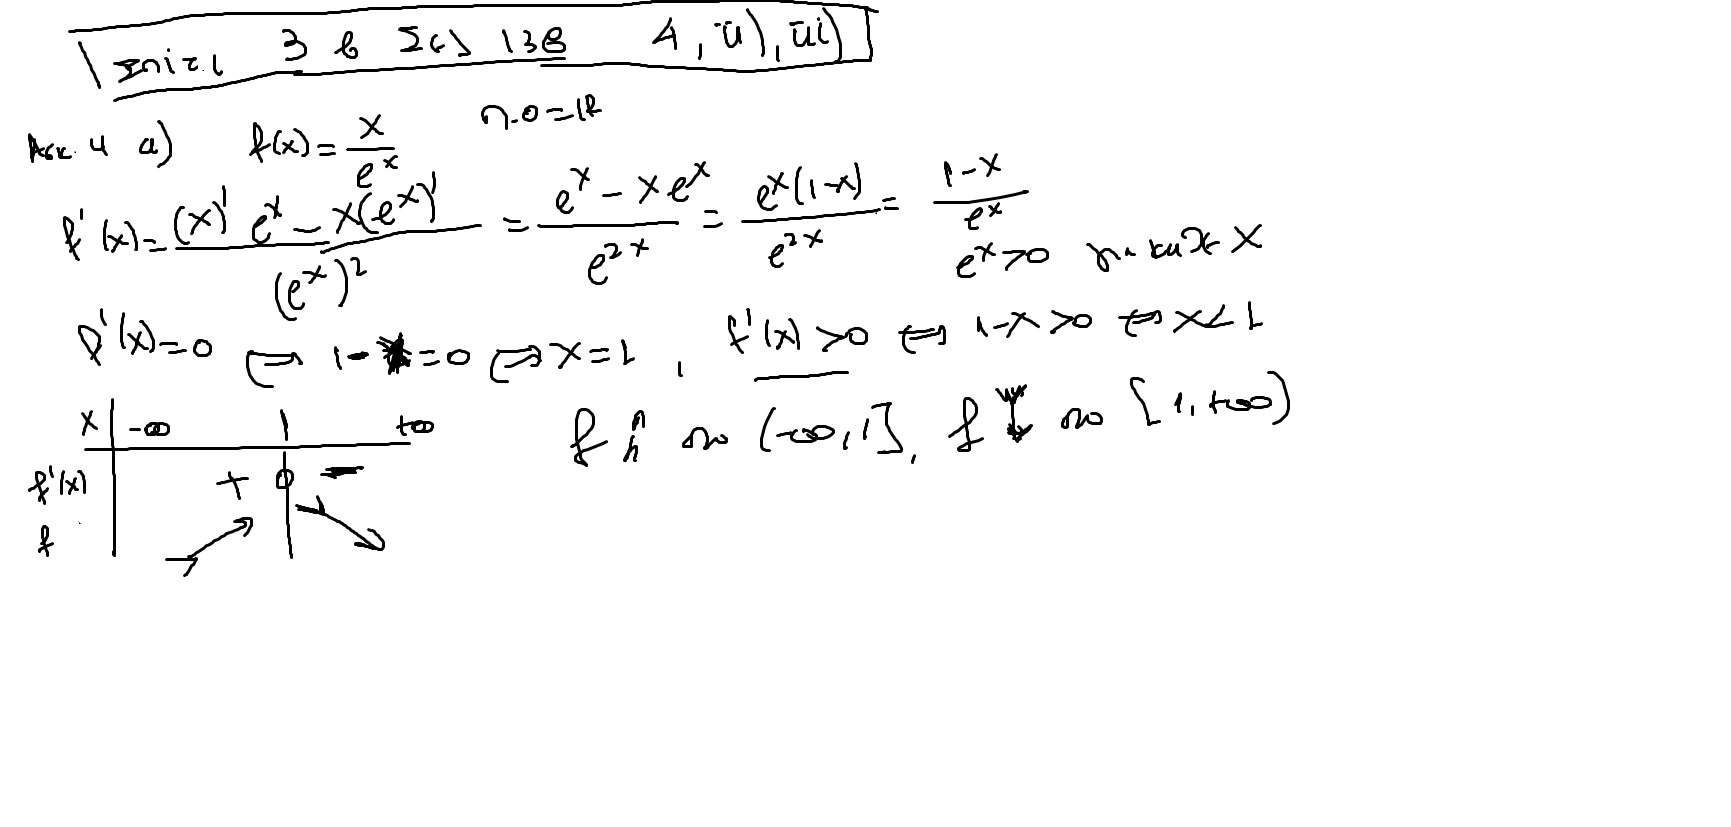 Σπίτι 3 β Σελ 138 4, ii), iii)
Ασκ. 4 α) f(x) = x/e^x π.ο = ℝ
f'(x) = ((x)' e^x - x(e^x)')/(e^x)^2 = (e^x - x e^x)/e^{2x} = e^x(1-x)/e^{2x} = (1-x)/e^x
e^x > 0 για κάθε x
f'(x) = 0 ⇔ 1 - x = 0 ⇔ x = 1, f'(x) > 0 ⇔ 1-x > 0 ⇔ x < 1
f ↑ στο (-∞, 1], f ↓ στο [1, +∞)
x | -∞ 1 +∞
f'(x) | + 0 -
f | ↗ ↘